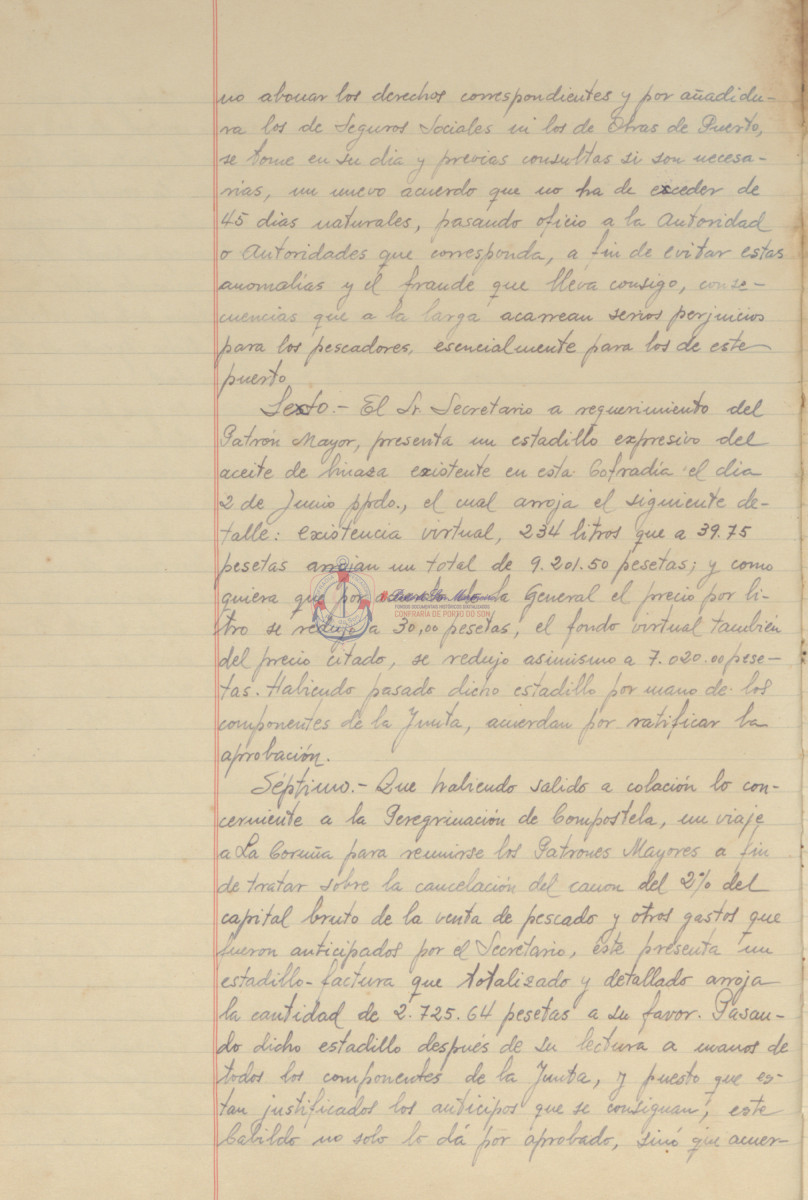 no abonar los derechos correspondientes y por añadidu-
ra los de Seguros Sociales ni los de Obras de Puerto,
se tome en su dia y previas consultas si son necesa-
rias, un nuevo acuerdo que no ha de exceder de
45 dias naturales, pasando oficio a la Autoridad
o Autoridades que corresponda, a fin de evitar estas
anomalías y el fraude que lleva consigo, conse-
cuencias que a la larga acarrean serios perjuicios
para los pescadores, esencialmente para los de este
puerto.
Sexto.- El Sr. Secretario a requerimiento del
Patrón Mayor, presenta un estadillo expresivo del
aceite de linaza existente en esta Cofradía el dia
2 de Junio ppdo., el cual arroja el siguiente de-
talle: existencia virtual, 234 litros que a 39.75
pesetas arrojan un total de 9.201.50 pesetas; y como
quiera que por acuerdo de la General el precio por li-
tro se redujo a 30,00 pesetas, el fondo virtual también
del precio citado, se redujo asimismo a 7.020.00 pese-
tas. Habiendo pasado dicho estadillo por mano de los
componentes de la Junta, acuerdan por ratificar la
aprobación.
Séptimo.- Que habiendo salido a colación lo con-
cerniente a la Peregrinación de Compostela, un viaje
a La Coruña para reunirse los Patrones Mayores a fin
de tratar sobre la cancelación del canon del 2% del
capital bruto de la venta de pescado y otros gastos que
fueron anticipados por el Secretario, éste presenta un
estadillo-factura que totalizado y detallado arroja
la cantidad de 2.725.64 pesetas a su favor. Pasan-
do dicho estadillo después de su lectura a manos de
todos los componentes de la Junta, y puesto que es-
tan justificados los anticipos que se consignan, este
Cabildo no solo lo dá por aprobado, sinó que acuer-
CONFRARÍA DE PORTO DO SON